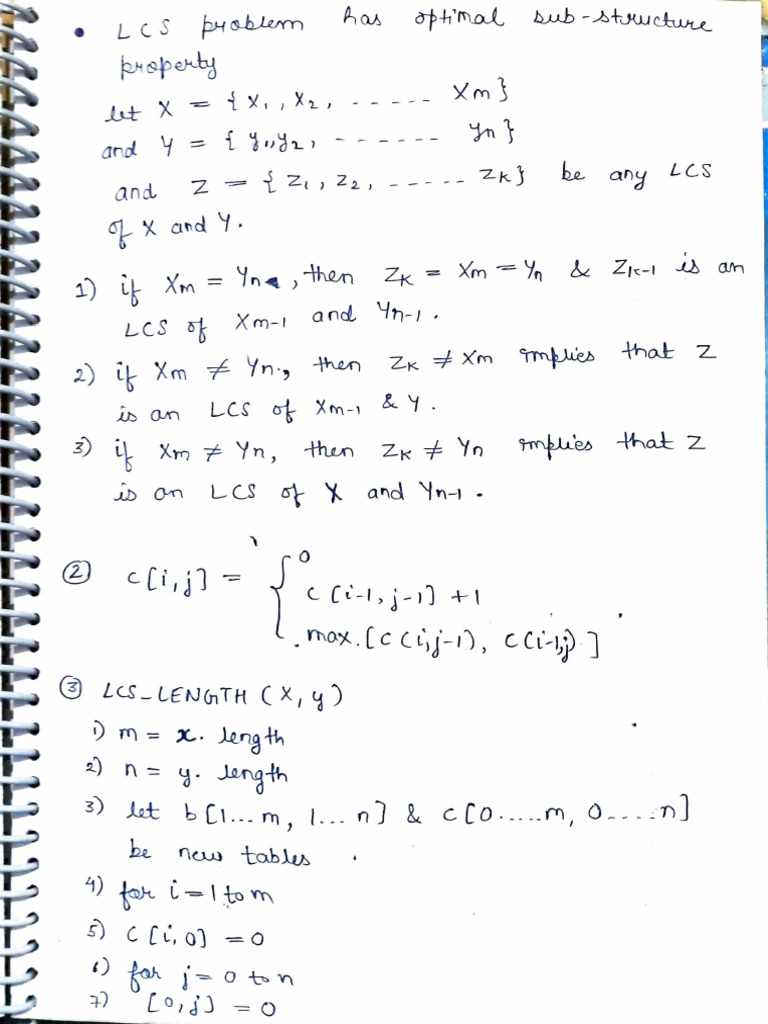 • LCS problem has optimal sub-structure
property
let X = {x1, x2, ------ Xm}
and Y = {y1,y2, ------- Yn}
and Z = {Z1, Z2, ------ ZK} be any LCS
of X and Y.
1) if Xm = Yn, then ZK = Xm = Yn & ZK-1 is an
LCS of Xm-1 and Yn-1.
2) if Xm ≠ Yn, then ZK ≠ Xm implies that Z
is an LCS of Xm-1 & Y.
3) if Xm ≠ Yn, then ZK ≠ Yn implies that Z
is an LCS of X and Yn-1.
② c[i,j] = { 0
c[i-1, j-1] + 1
max.[c(i,j-1), c(i-1,j)]
③ LCS_LENGTH (X, y)
1) m = x. length
2) n = y. length
3) let b[1...m, 1...n] & c[0.....m, 0.....n]
be new tables.
4) for i=1 to m
5) c[i,0] = 0
6) for j=0 to n
7) [0,j] = 0